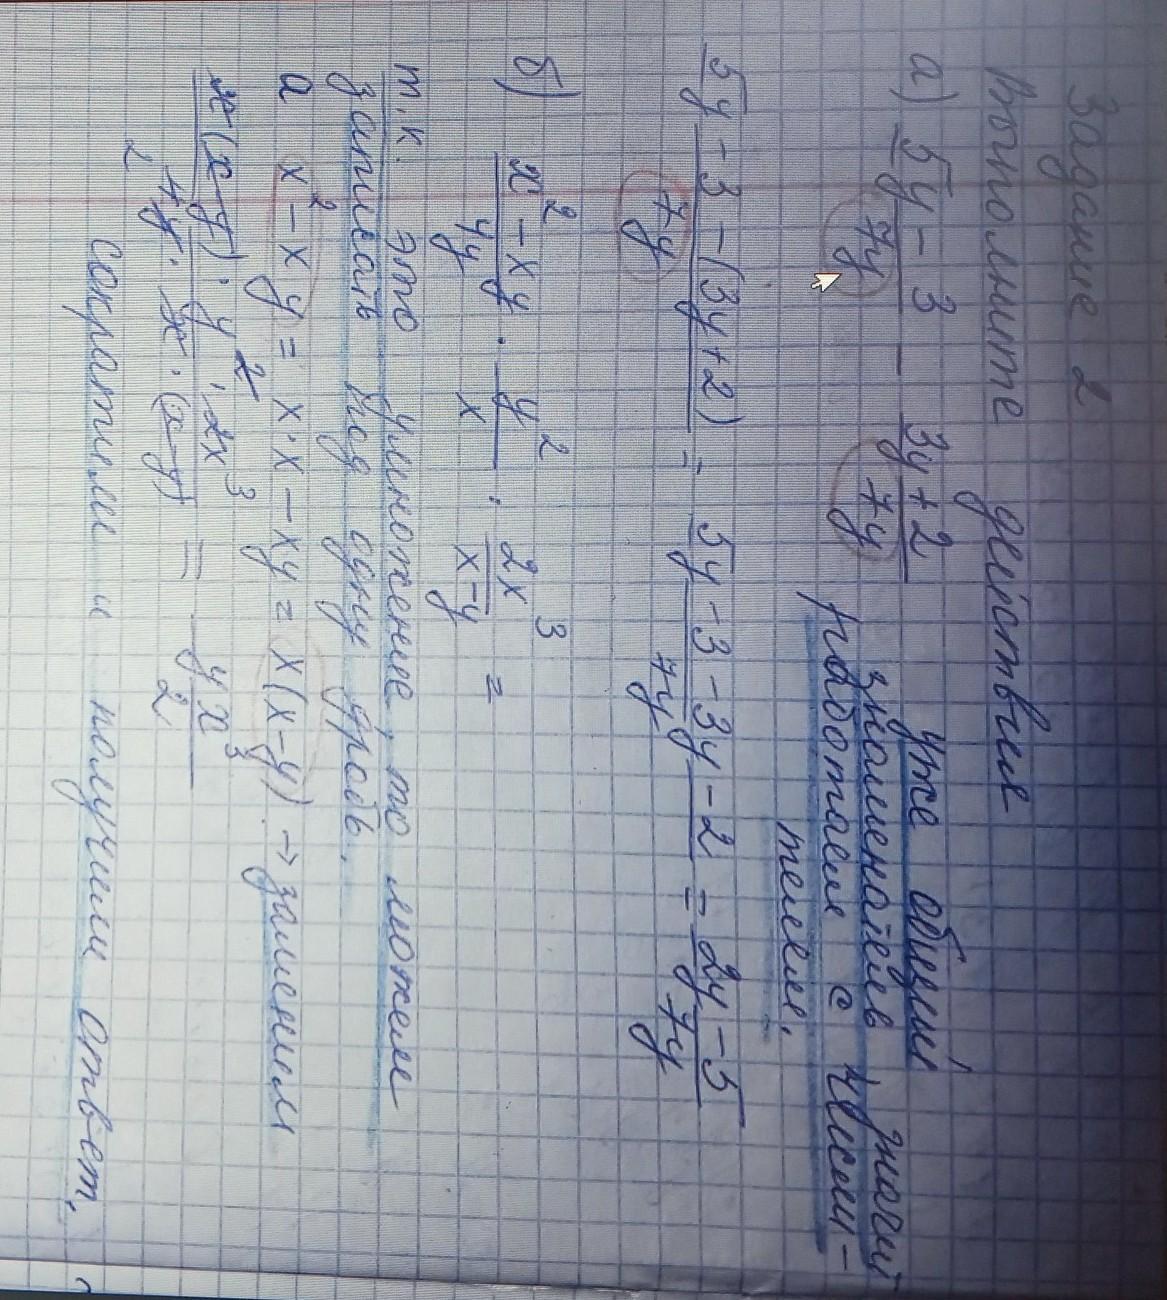 Задание 2
Выполните действие
а) (5y - 3)/(7y) - (3y + 2)/(7y) уже общий
знаменатель, значит
работаем с числи-
телем.
(5y - 3 - (3y + 2))/(7y) = (5y - 3 - 3y - 2)/(7y) = (2y - 5)/(7y)
б) (x² - xy)/(4y) · y²/x · 2x³/(x - y) =
т.к. это умножение, то можем
записать под одну дробь.
а x² - xy = x·x - xy = x(x - y) → заменим
(x(x - y) · y² · 2x³)/(4y · x · (x - y)) = yx³/2
2
сократим и получим ответ.